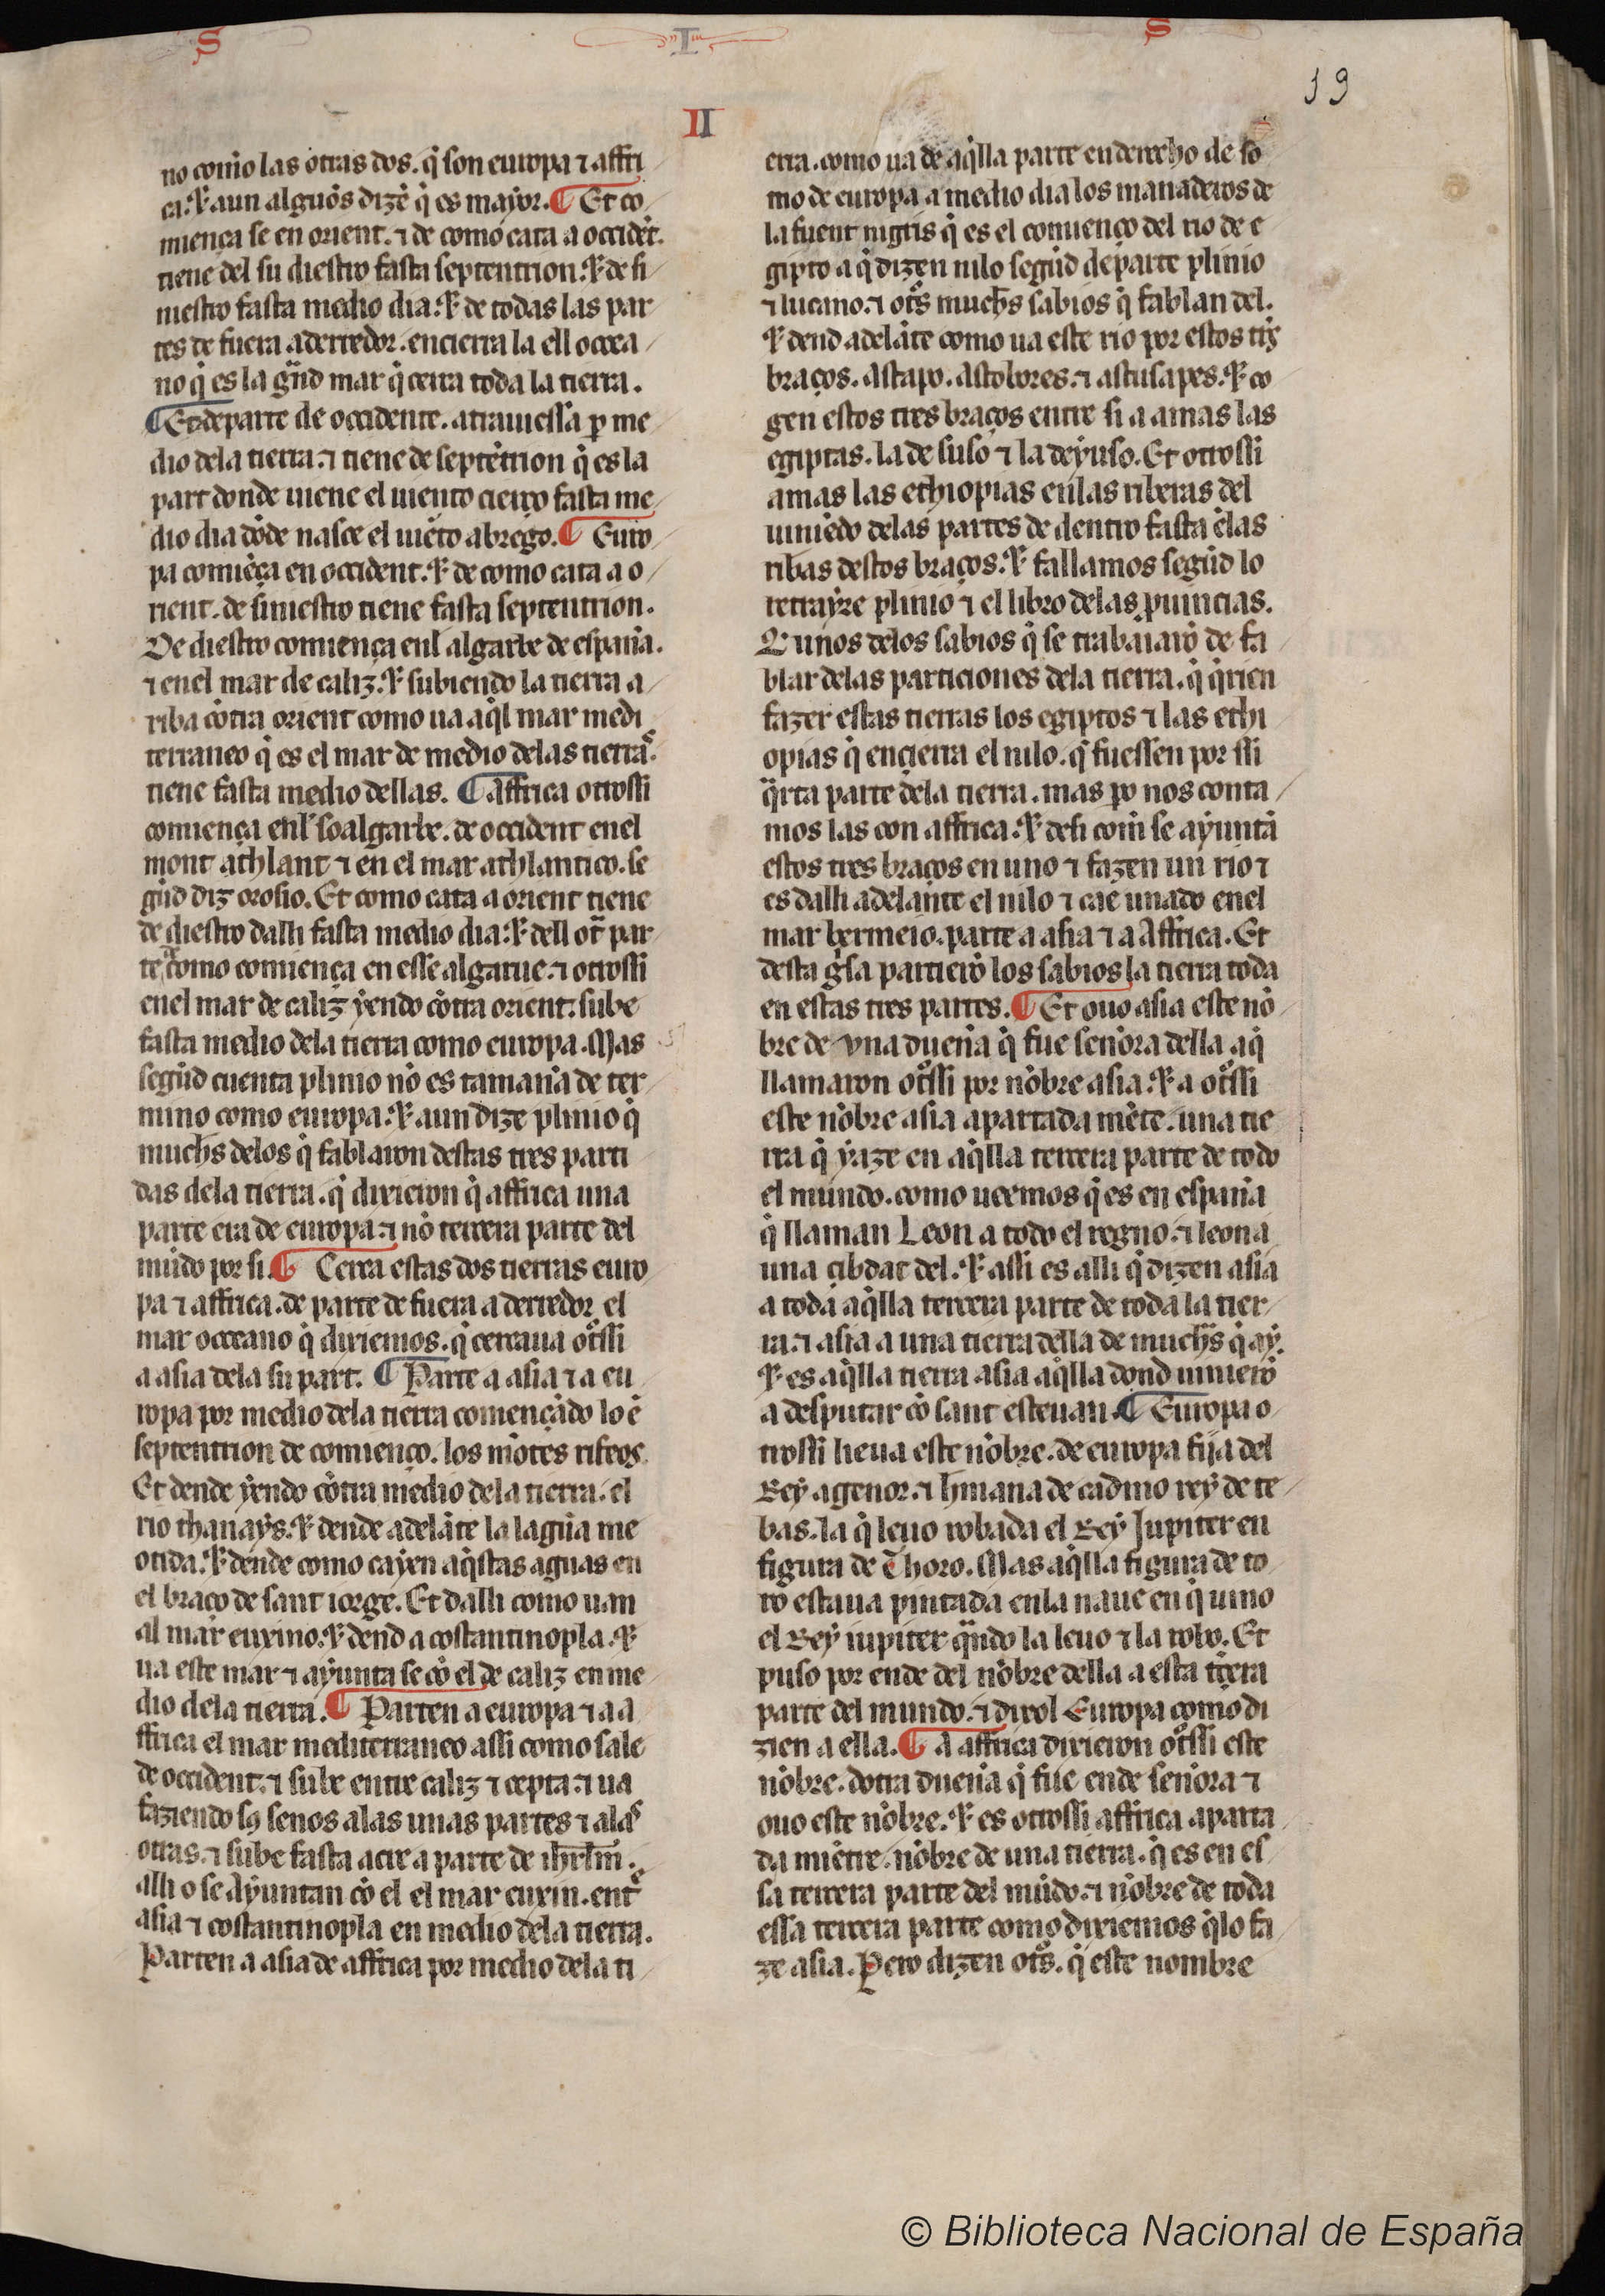 S I S
19
II
no como las otras dos. q̇ son europa ⁊ affri
ca. ⁊ aun alguõs dizẽ q̇ es mayor. ¶ Et co
miença se en orient. ⁊ de como cata a occidẽt.
tiene del su diestro fasta septentrion. ⁊ de si
niestro fasta medio dia. ⁊ de todas las par
tes de fuera aderredor. encierra la ell occea
no q̇ es la gñd mar q̇ cerca toda la tierra.
¶ Et departe de occidente. atrauiessa ꝑ me
dio dela tierra. ⁊ tiene de septẽtrion q̇ es la
part donde uiene el uiento cierço fasta me
dio dia dõde nasce el uiẽto abrego. ¶ Euro
pa comiẽça en occident. ⁊ de como cata a o
rient. de siniestro tiene fasta septentrion.
De diestro comiença enl algarbe de españa.
⁊ enel mar de caliz. ⁊ subiendo la tierra a
riba cõtra orient como ua aq̇l mar medi
terraneo q̇ es el mar de medio delas tierras.
tiene fasta medio dellas. ¶ affrica otrossi
comiença enl soalgarbe. de occident enel
mont athlant ⁊ en el mar athlantico. se
gũd diz orosio. Et como cata a orient tiene
de diestro dalli fasta medio dia. ⁊ dell otr̃ par
te como comiença en esse algarue. ⁊ otrossi
enel mar de caliz yendo cõtra orient. sube
fasta medio dela tierra como europa. Mas
segũd cuenta plinio nõ es tamaña de ter
mino como europa. ⁊ aun dize plinio q̇
muchs delos q̇ fablaron destas tres parti
das dela tierra. q̇ dixieron q̇ affrica una
parte era de europa. ⁊ nõ tercera parte del
mũdo por si. ¶ Cerca estas dos tierras euro
pa ⁊ affrica. de parte de fuera aderredor el
mar occeano q̇ dixiemos. q̇ cercaua ot̃ssi
a asia dela su part. ¶ Parte a asia ⁊ a eu
ropa por medio dela tierra començãdo lo ẽ
septentrion de comienço. los mõtes rifeos
Et dende yendo cõtra medio dela tierra. el
rio thanays. ⁊ dende adelãte la lagũa me
otida. ⁊ dende como cayen aq̇stas aguas en
el braço de sant iorge. Et dalli como uan
al mar euxino. ⁊ dend a costantinopla. ⁊
ua este mar ⁊ ayunta se cõ el de caliz en me
dio dela tierra. ¶ Parten a europa ⁊ a a
ffrica el mar mediterraneo assi como sale
de occident. ⁊ sube entre caliz ⁊ cepta. ⁊ ua
faziendo sꝯ senos alas unas partes ⁊ alas
otras. ⁊ sube fasta acre a parte de ihrlm̃.
alli o se ayuntan cõ el el mar euxin. entr̃
asia ⁊ costantinopla en medio dela tierra.
Parten a asia de affrica por medio dela ti
erra. como ua de aq̇lla parte en derecho de so
mo de europa a medio dia los manaderos de
la fuent nigris q̇ es el comienço del rio de e
gipto a q̇ dizen nilo segũd departe plinio
⁊ lucano. ⁊ otr̃s muchs sabios q̇ fablan del.
⁊ dend adelãte como ua este rio por estos tr̃s
braços. astapo. astobores. ⁊ astusapes. ⁊ co
gen estos tres braços entre si a amas las
egiptas. la de suso ⁊ la deyuso. Et otrossi
amas las ethiopias enlas riberas del
uiniẽdo delas partes de dentro fasta ẽlas
ribas destos braços. ⁊ fallamos segũd lo
retrayre plinio ⁊ el libro delas puincias.
⁊ unos delos sabios q̇ se trabaiarõ de fa
blar delas particiones dela tierra. q̇ q̇rien
fazer estas tierras los egiptos ⁊ las ethi
opias q̇ encierra el nilo. q̇ fuessen por ssi
q̃rta parte dela tierra. mas ꝑo nos conta
mos las con affrica. ⁊ desi com̃ se ayuntã
estos tres braços en uno ⁊ fazen un rio ⁊
es dalli adelante el nilo ⁊ cae unado enel
mar bermeio. parte a asia ⁊ a Affrica. Et
desta g̃sa partierõ los sabios la tierra toda
en estas tres partes. ¶ Et ouo asia este nõ
bre de una dueña q̇ fue señora della aq̇
llamaron ot̃ssi por nõbre asia. ⁊ a ot̃ssi
este nõbre asia apartada mẽte. una tie
rra q̇ yaze en aq̇lla tercera parte de todo
el mundo. como ueemos q̇ es en españa
q̇ llaman Leon a todo el regno. ⁊ leon a
una çibdat del. ⁊ assi es alli q̇ dizen asia
a toda aq̇lla tercera parte de toda la tier
ra. ⁊ asia a una tierra della de muchs q̇ ay.
⁊ es aq̇lla tierra asia aq̇lla dond uinierõ
a desputar cõ sant esteuan. ¶ Europa o
trossi lieua este nõbre. de europa fija del
Rey agenor. ⁊ hmana de cadmo rey de te
bas. la q̇ leuo robada el Rey Jupiter en
figura de Thoro. Mas aq̇lla figura de to
ro estaua pintada enla naue en q̇ uino
el Rey iupiter q̃ndo la leuo ⁊ la robo. Et
puso por ende del nõbre della a esta tc̃era
parte del mundo. ⁊ dixol Europa como di
zien a ella. ¶ A affrica dixieron ot̃ssi este
nõbre. dotra dueña q̇ fue ende señora ⁊
ouo este nõbre. ⁊ es otrossi affrica aparta
da miẽtre. nõbre de una tierra. q̇ es en es
sa tercera parte del mũdo. ⁊ nõbre de toda
essa tercera parte como dixiemos q̇lo fa
ze asia. Pero dizen otr̃s. q̇ este nombre
© Biblioteca Nacional de España